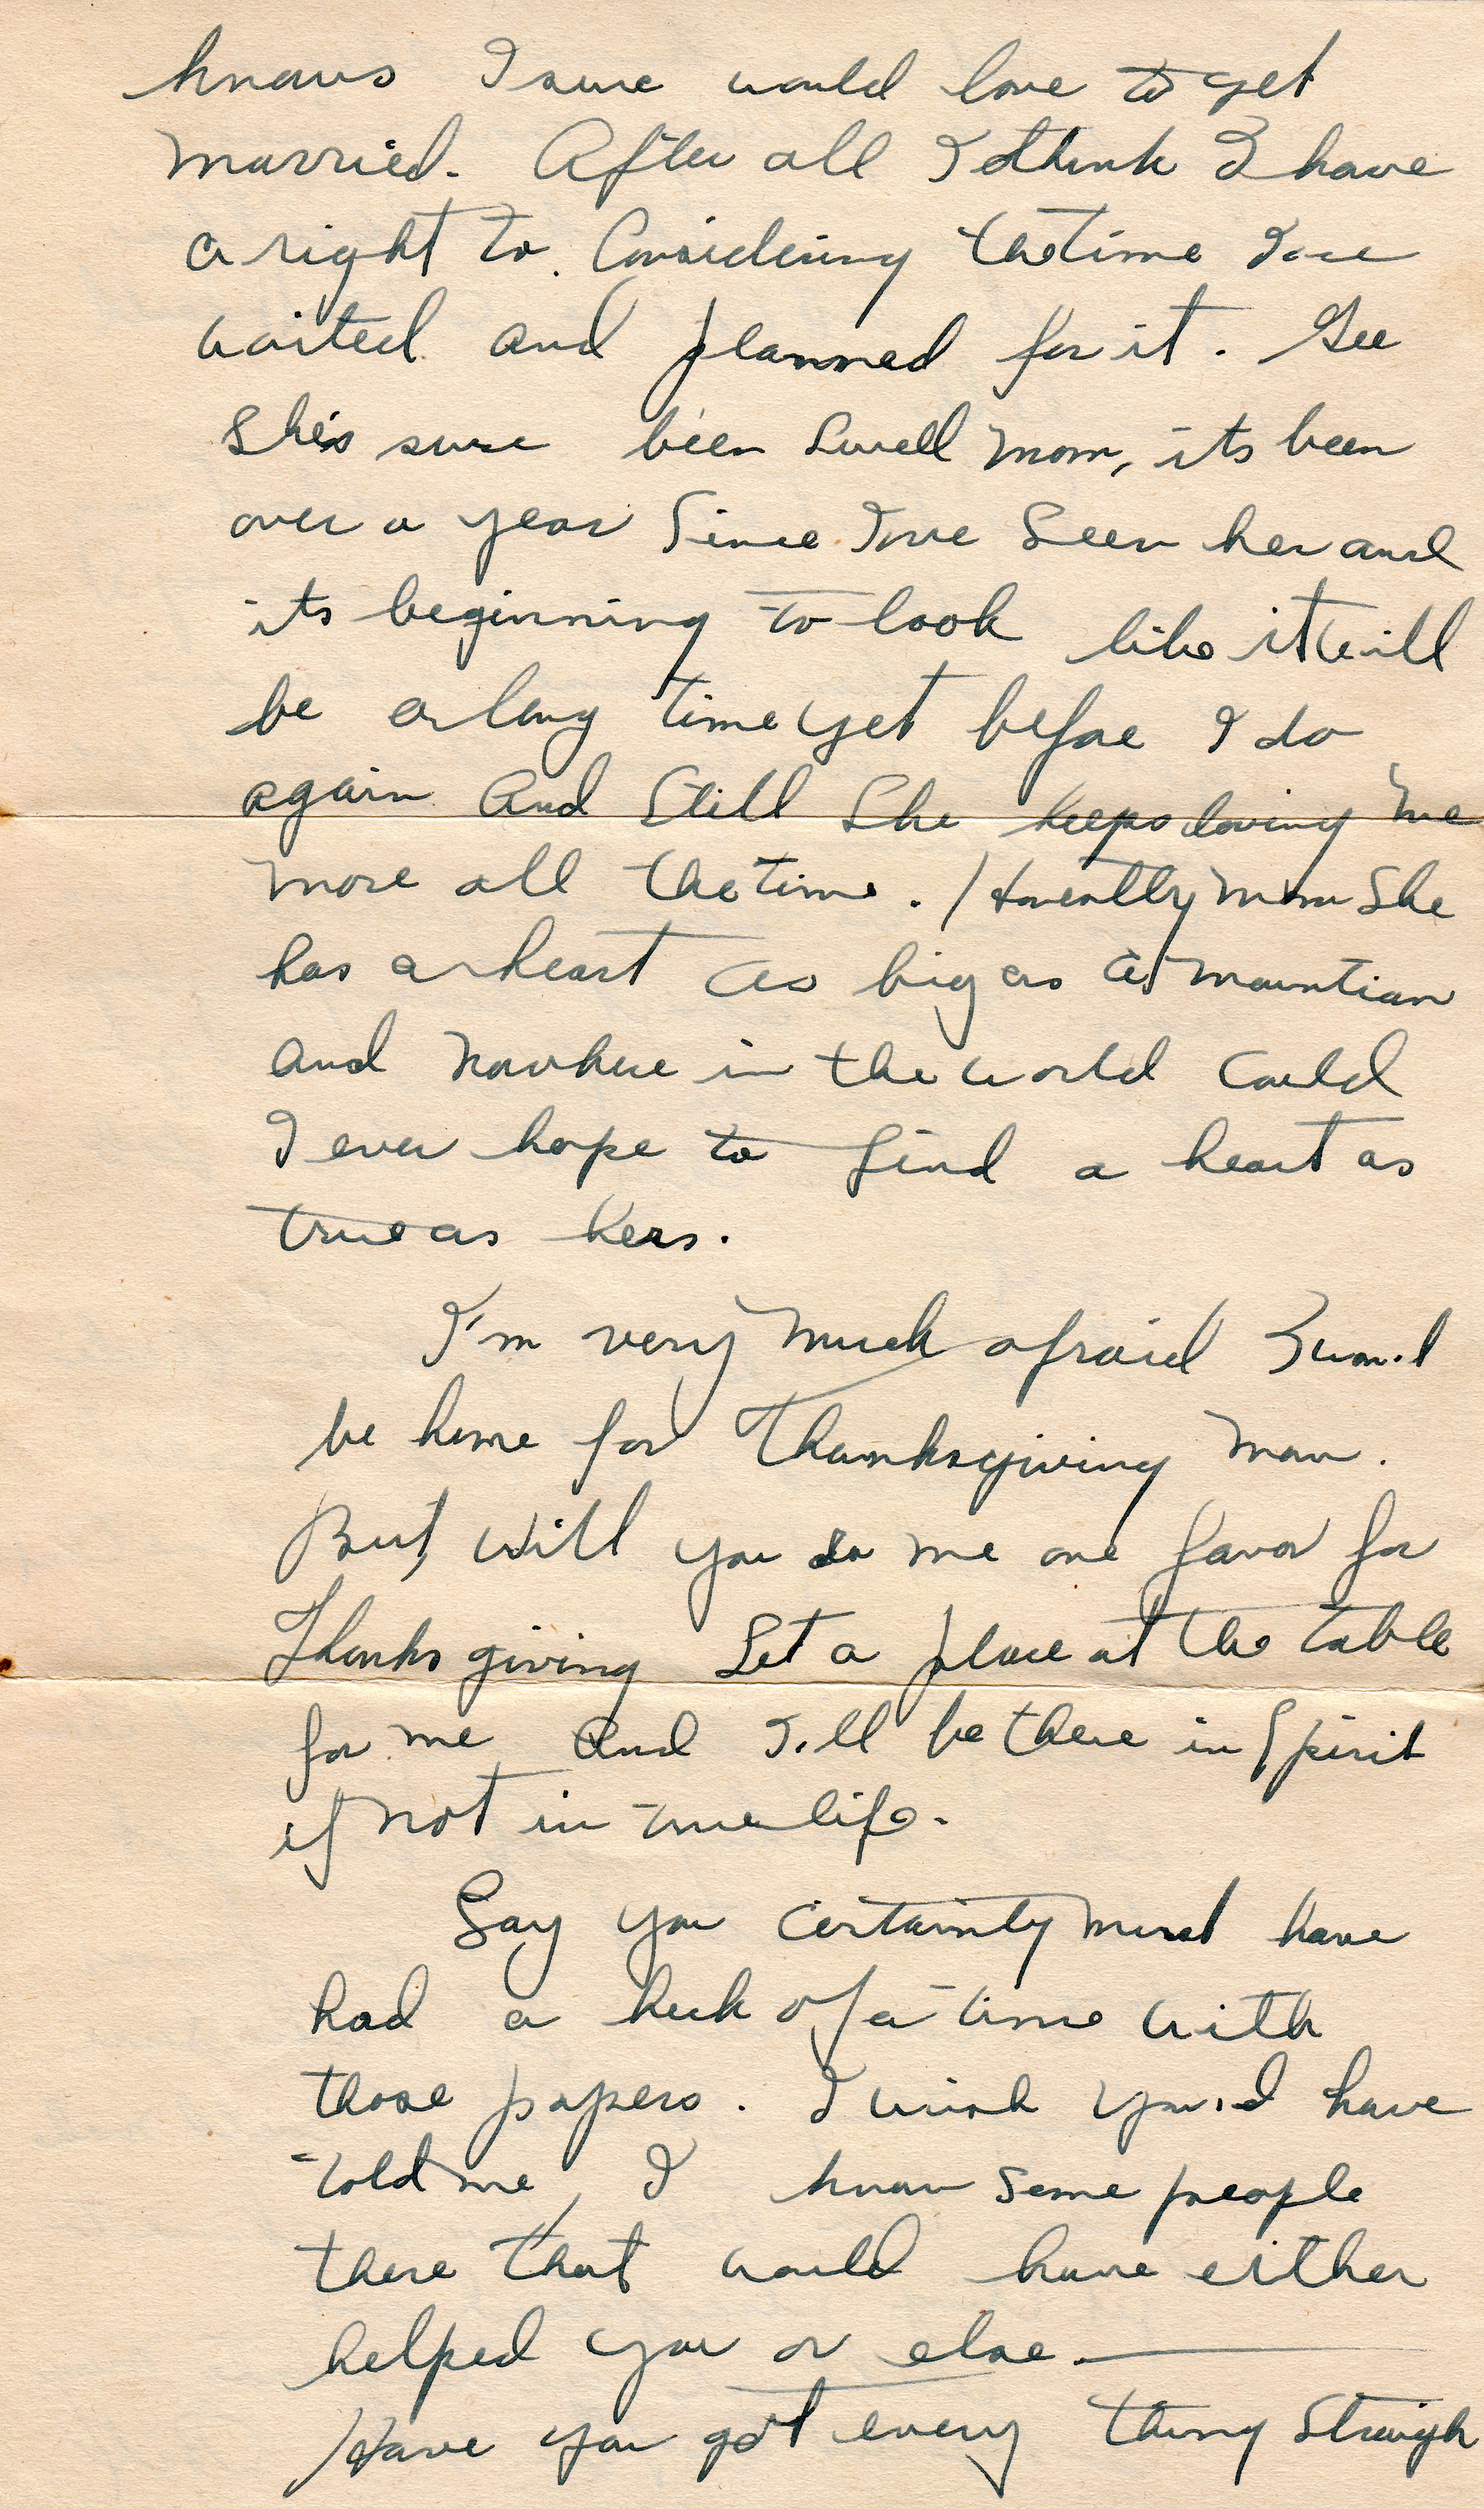 knows I sure would love to get
married. After all I think I have
a right to. Considering the time I've
waited and planned for it. Gee
She's sure been Swell Mom, its been
over a year Since I've Seen her and
its beginning to look like it will
be a long time yet before I do
again And Still She keeps loving me
more all the time. Honestly Mom She
has a heart as big as a mountian
and nowhere in the world could
I ever hope to find a heart as
true as hers.
I'm very much afraid I won't
be home for Thanksgiving Mom.
But, will you do me one favor for
Thanksgiving Set a place at the table
for me and I'll be there in Spirit
if not in true life.
Say you certainty must have
had a heck of a time with
those papers. I wish you'd have
told me, I know some people
there that would have either
helped you or else. —
Have you got every thing Straigh